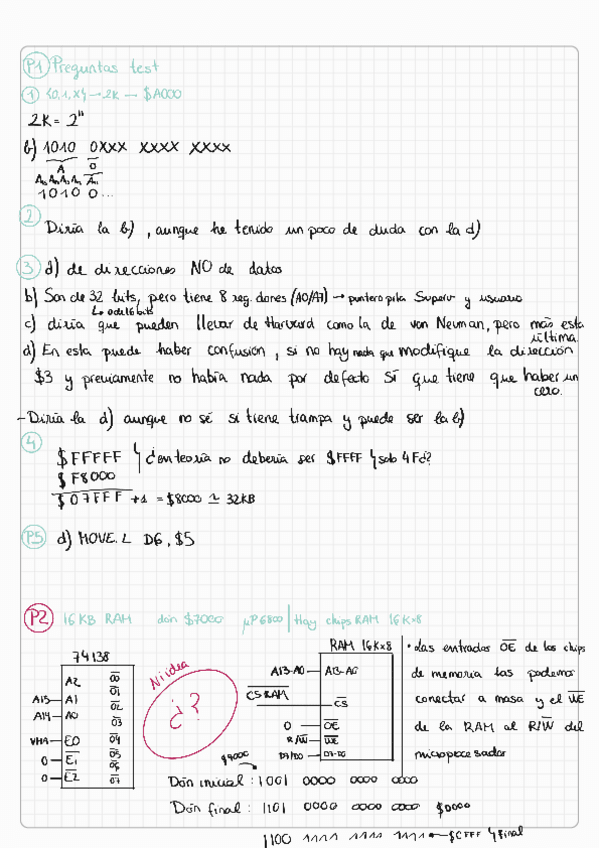 P1 Preguntas test
1 {0,1,X} → 2K → $A000
2K = 2¹¹
b) 1010 0XXX XXXX XXXX
A 0
1010 0...
2 Diría la b), aunque he tenido un poco de duda con la d)
3 a) de direcciones NO de datos
b) Son de 32 bits, pero tiene 8 reg. dones (A0/A7) → puntero pila Superv y usuario
↳ o de 16 bits
c) diría que pueden llevar de Harvard como la de von Neuman, pero más esta
última.
d) En esta puede haber confusión, si no hay nada que modifique la dirección
$3 y previamente no había nada por defecto SÍ que tiene que haber un
cero.
- Diría la d) aunque no sé si tiene trampa y puede ser la b)
4
$FFFFF ¿en teoría no debería ser $FFFF y sob 4F´s?
$F8000
$07FFF +1 = $8000 ≃ 32KB
P5 d) MOVE.L D6, $5
P2 16KB RAM don $7000 μP6800 | Hay chips RAM 16K×8
74138
A2
A15 A1
A14 A0
VMA E0
0 E1
0 E2
O0
O1
O2
O3
O4
O5
O6
O7
Ni idea
¿?
RAM 16K×8
A13-A0 A13-A0
CSRAM CS
0 OE
R/W WE
D7/D0 D7-D0
• Las entradas OE de los chips
de memoria las podemos
conectar a masa y el WE
de la RAM al R/W del
microprocesador
$9000
Don inicial: 1001 0000 0000 0000
Don final: 1101 0000 0000 0000 $D000
1100 1111 1111 1111 ← $CFFF y final